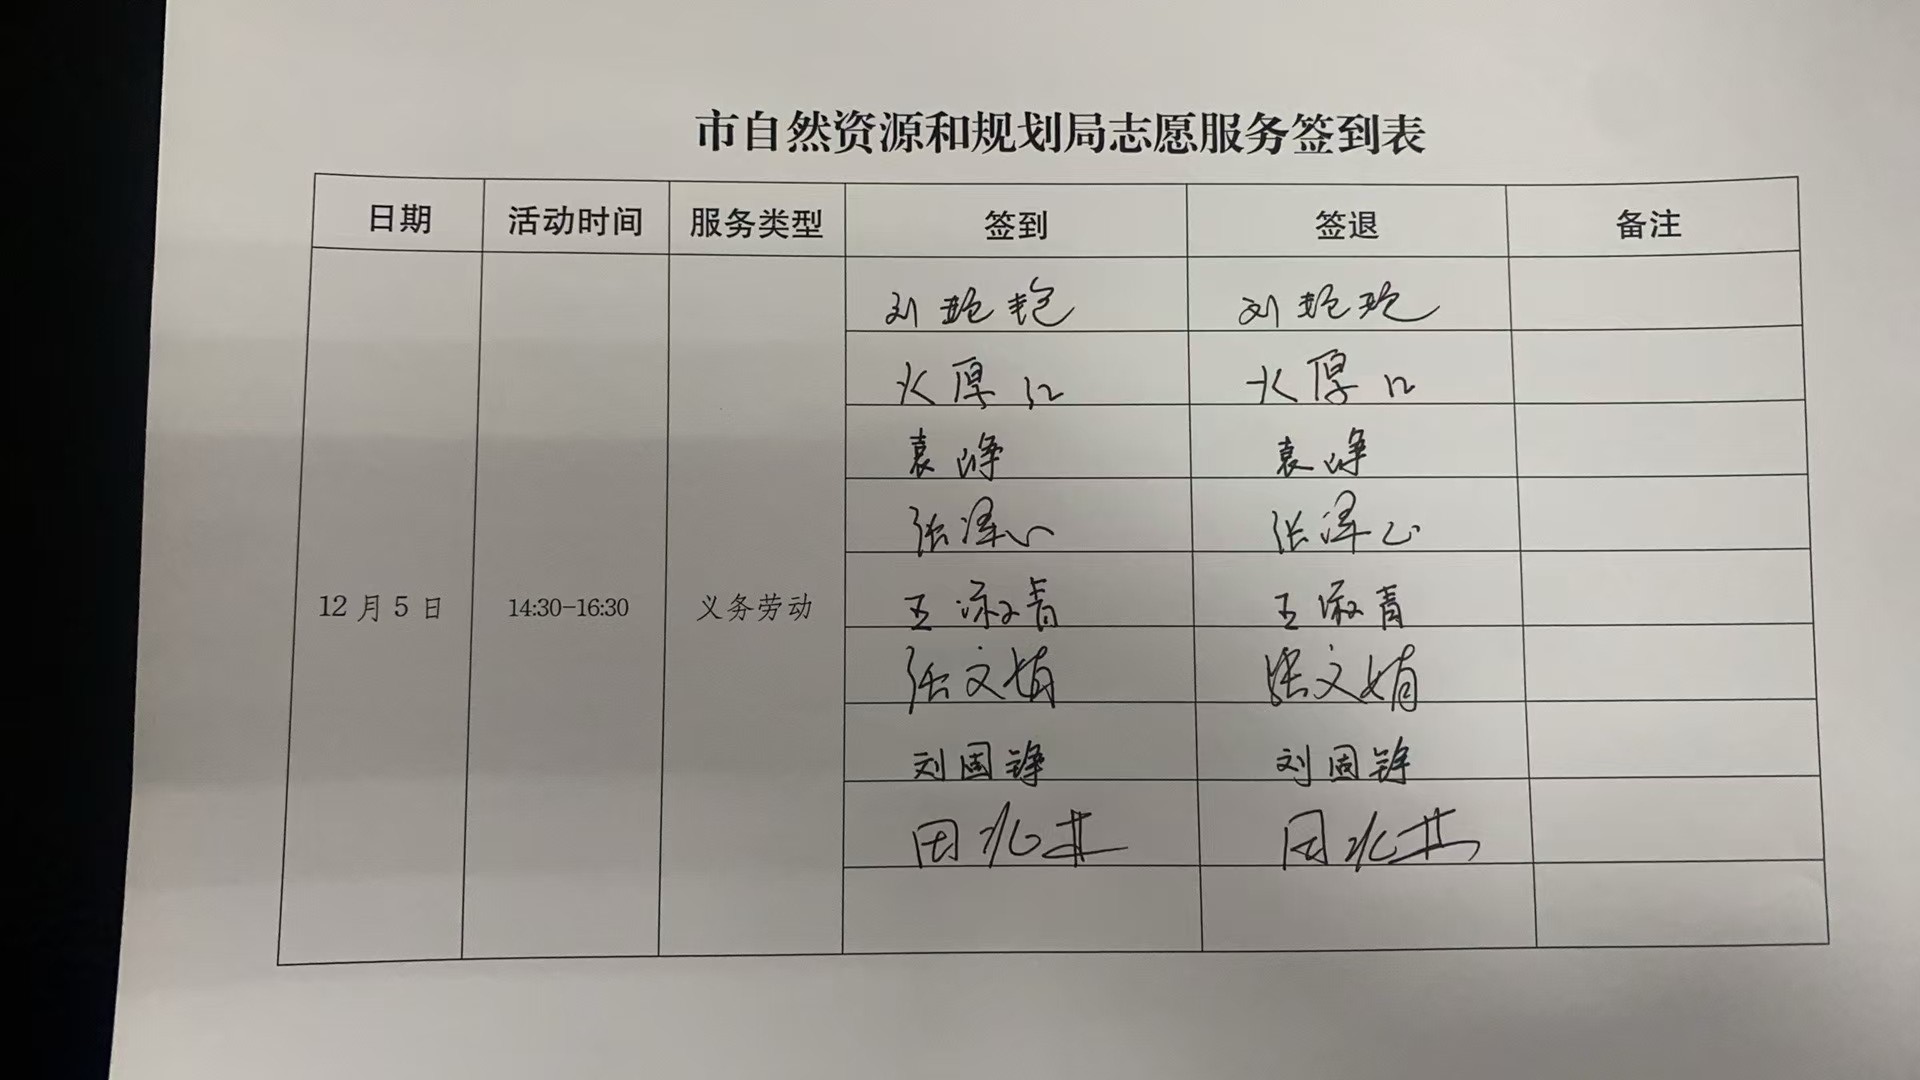 市自然资源和规划局志愿服务签到表
日期 活动时间 服务类型 签到 签退 备注
刘艳艳 刘艳艳
火厚江 火厚江
袁峥 袁峥
张泽心 张泽心
12月5日 14:30-16:30 义务劳动 王淑青 王淑青
张文娟 张文娟
刘国锋 刘国锋
田兆井 田兆井